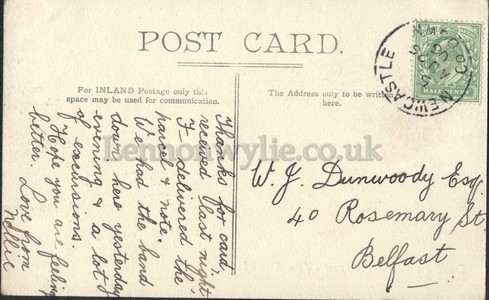 POST CARD.
For INLAND Postage only this
space may be used for communication.
The Address only to be written
here.
Thanks for card,
received last night
I delivered the
parcel & note.
We had the band
down here yesterday
evening & a lot
of excursions.
Hope you are feeling
better. Love from
Nellie
W. J. Dunwoody Esq.
40 Rosemary St.
Belfast
NEWCASTLE
CO. DOWN
HALFPENNY
Lemonwylie.co.uk